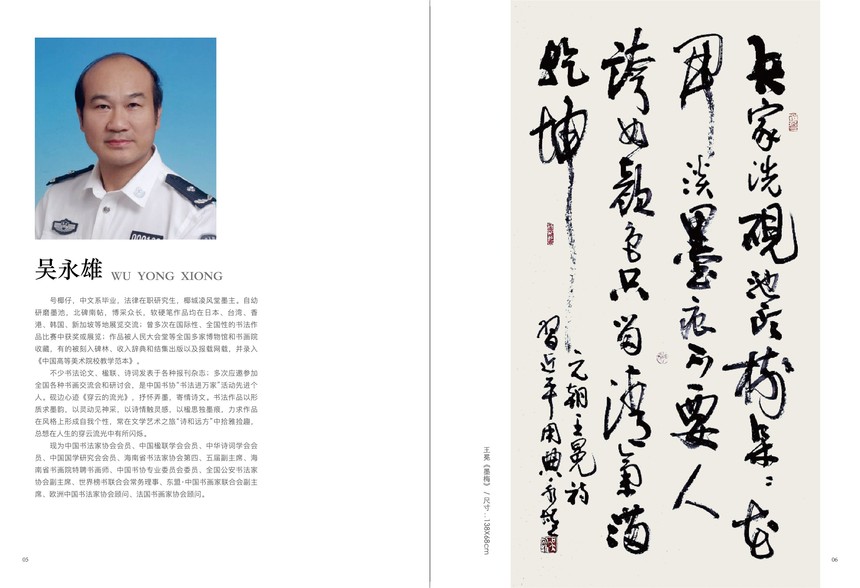 吴永雄 WU YONG XIONG
号椰仔,中文系毕业,法律在职研究生,椰城凌风堂墨主。自幼
研磨墨池,北碑南帖,博采众长,软硬笔作品均在日本、台湾、香
港、韩国、新加坡等地展览交流;曾多次在国际性、全国性的书法作
品比赛中获奖或展览;作品被人民大会堂等全国多家博物馆和书画院
收藏,有的被刻入碑林、收入辞典和结集出版以及报载网载,并录入
《中国高等美术院校教学范本》。
不少书法论文、楹联、诗词发表于各种报刊杂志;多次应邀参加
全国各种书画交流会和研讨会,是中国书协“书法进万家”活动先进个
人。砚边心迹《穿云的流光》,抒怀弄墨,寄情诗文。书法作品以形
质求墨韵,以灵动见神采,以诗情触灵感,以楹思独墨痕,力求作品
在风格上形成自我个性,常在文学艺术之旅“诗和远方”中拾雅捡趣,
总想在人生的穿云流光中有所闪烁。
现为中国书法家协会会员、中国楹联学会会员、中华诗词学会会
员、中国国学研究会会员、海南省书法家协会第四、五届副主席、海
南省书画院特聘书画师、中国书协专业委员会委员、全国公安书法家
协会副主席、世界榜书联合会常务理事、东盟·中国书画家联合会副主
席、欧洲中国书法家协会顾问、法国书画家协会顾问。
05
家洗硯池頭樹朵々花
開淡墨痕不要人
誇好顏色只留清氣滿
乾坤
元朝王冕詩
習近平用典永雄
王冕《墨梅》/尺寸:138X68cm
06